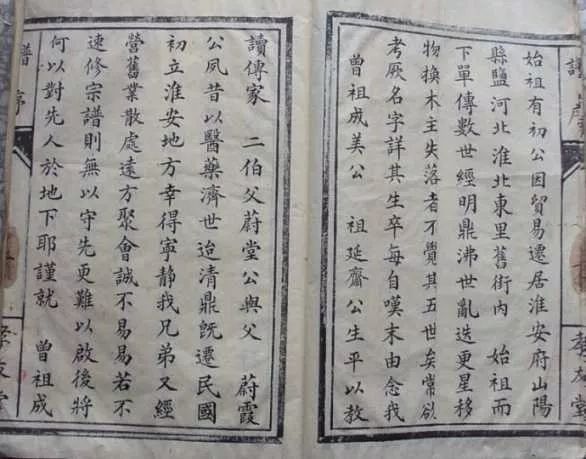 始祖有初公因貿易遷居淮安府山陽
縣鹽河北淮北東里舊街内　始祖而
下單傳數世經明鼎沸世亂迭更星移
物換木主失落者不覺其五世矣常欲
考厥名字詳其生卒每自嘆末由念我
曾祖成美公　祖延齋公生平以教
讀傳家　二伯父蔚堂公與父　蔚霞
公夙昔以醫藥濟世迨清鼎既遷民國
初立淮安地方幸得寧靜我兄弟又經
營舊業散處遠方聚會誠不易易若不
速修宗譜則無以守先更難以啟後將
何以對先人於地下耶謹就　曾祖成
譜序